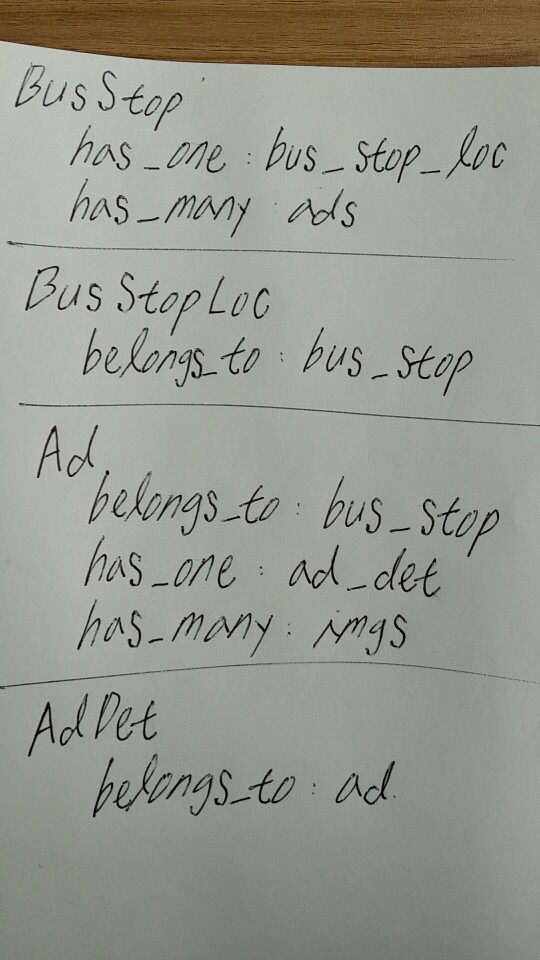 BusStop
has_one : bus_stop_loc
has_many : ads
BusStopLoc
belongs_to : bus_stop
Ad
belongs_to : bus_stop
has_one : ad_det
has_many : imgs
AdDet
belongs_to : ad